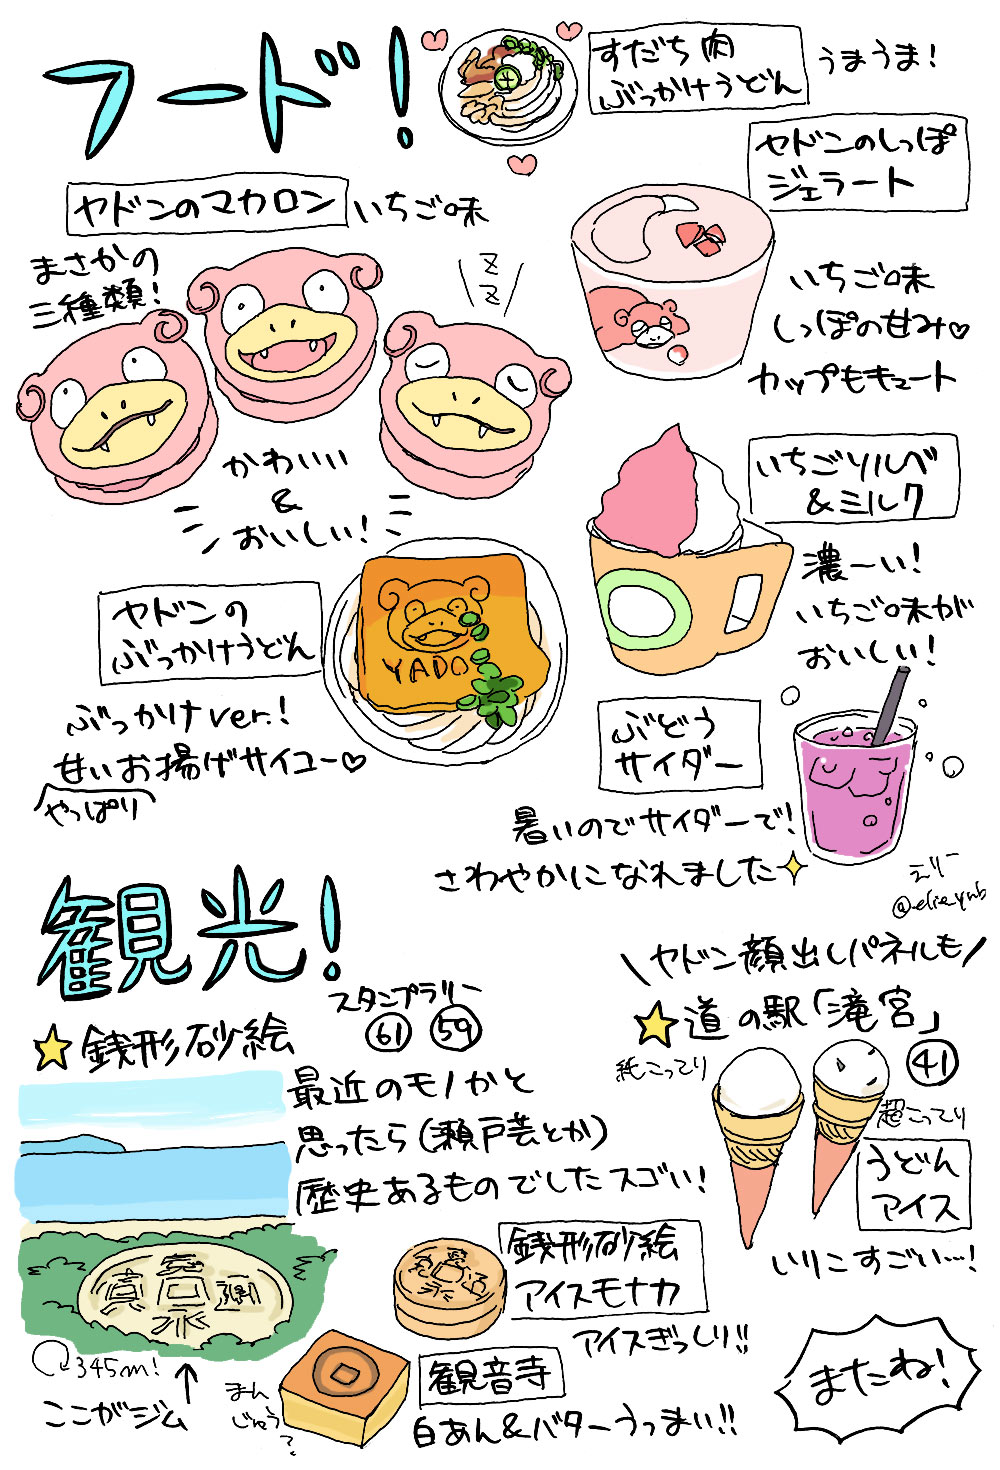 フード!
すだち肉
ぶっかけうどん
うまうま!
ヤドンのしっぽ
ジェラート
いちご味
しっぽの甘み♡
カップもキュート
ヤドンのマカロン
いちご味
まさかの
三種類!
ZZ
かわいい
&
おいしい!
いちごソルベ
&ミルク
濃〜い!
いちご味が
おいしい!
ヤドンの
ぶっかけうどん
YADO
ぶっかけver.!
甘いお揚げサイコー♡
やっぱり
ぶどう
サイダー
暑いのでサイダーで!
さわやかになれました
えりー
@elie_ynb
観光!
スタンプラリー
61 59
☆銭形砂絵
最近のモノかと
思ったら(瀬戸芸とか)
歴史あるものでしたスゴい!
寛永通宝
345m!
ここがジム
銭形砂絵
アイスモナカ
アイスぎっしり!!
観音寺
まん
じゅう?
白あん&バターうっまい!!
\ヤドン顔出しパネルも/
☆道の駅「滝宮」
41
純こってり
超こってり
うどん
アイス
いりこすごい…!
またね!